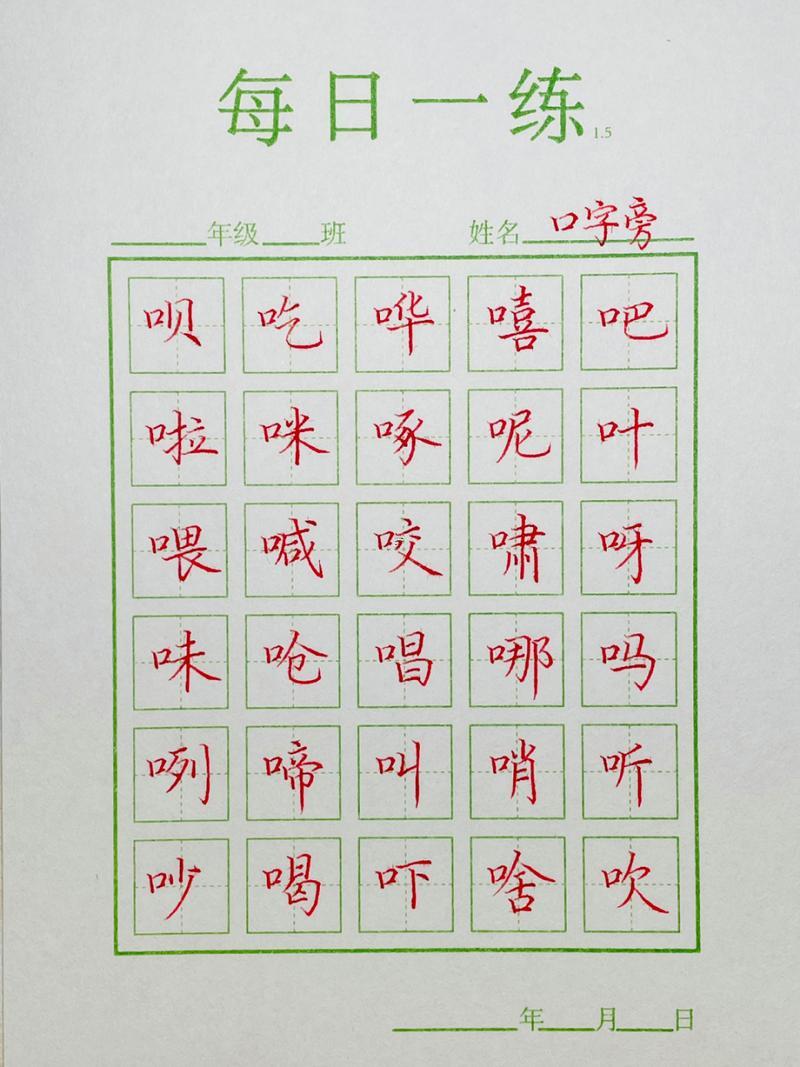 每日一练 1.5
年级 班 姓名 口字旁
呗 吃 哗 嘻 吧
啦 咪 啄 呢 叶
喂 喊 咬 啸 呀
味 呛 唱 哪 吗
咧 啼 叫 哨 听
吵 喝 吓 啥 吹
年 月 日